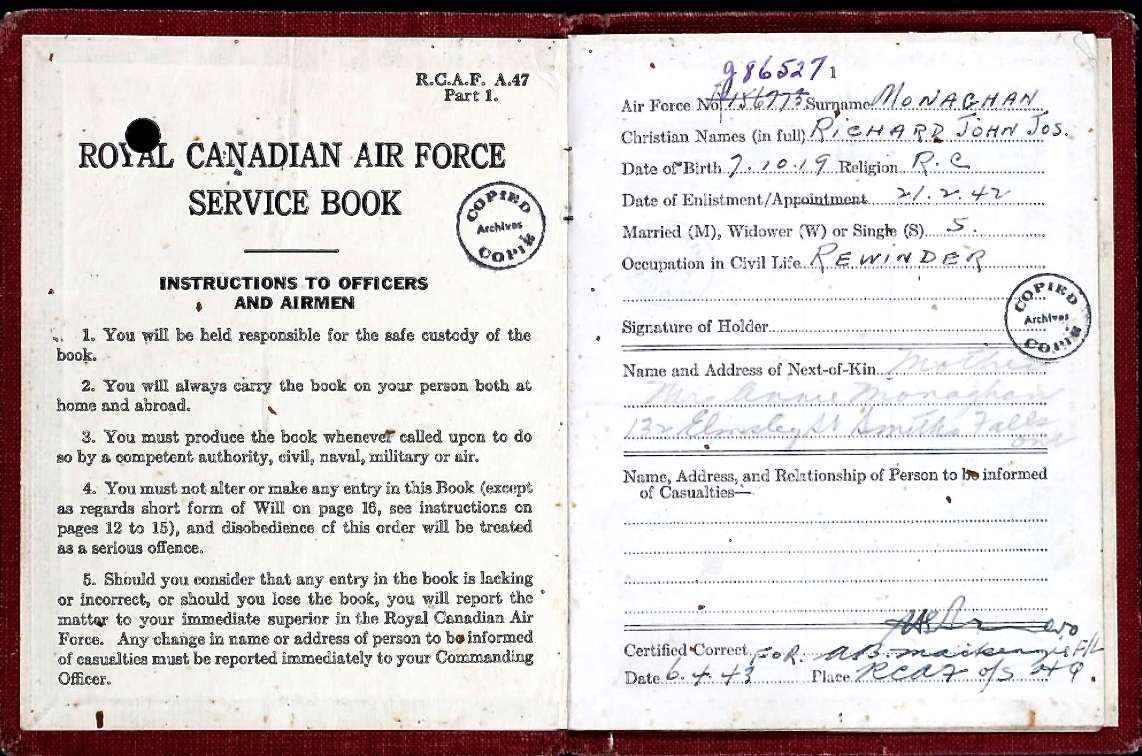 R.C.A.F. A.47
Part 1.
ROYAL CANADIAN AIR FORCE
SERVICE BOOK
COPIED
Archives
COPIE
INSTRUCTIONS TO OFFICERS
AND AIRMEN
1. You will be held responsible for the safe custody of the
book.
2. You will always carry the book on your person both at
home and abroad.
3. You must produce the book whenever called upon to do
so by a competent authority, civil, naval, military or air.
4. You must not alter or make any entry in this Book (except
as regards short form of Will on page 16, see instructions on
pages 12 to 15), and disobedience of this order will be treated
as a serious offence.
5. Should you consider that any entry in the book is lacking
or incorrect, or should you lose the book, you will report the
matter to your immediate superior in the Royal Canadian Air
Force. Any change in name or address of person to be informed
of casualties must be reported immediately to your Commanding
Officer.
J86527 1
Air Force No. Surname MONAGHAN
Christian Names (in full) RICHARD JOHN JOS.
Date of Birth 7.10.19 Religion R.C
Date of Enlistment/Appointment 21.2.42
Married (M), Widower (W) or Single (S) S.
Occupation in Civil Life REWINDER
COPIED
Archives
COPIE
Signature of Holder
Name and Address of Next-of-Kin Mother
Mrs Annie Monaghan
132 Elmsley St Smiths Falls
Ont
Name, Address, and Relationship of Person to be informed
of Casualties—
Certified Correct FOR. AB. Mackenzie F/L
Date 6.4.43 Place RCAF O/S HQ